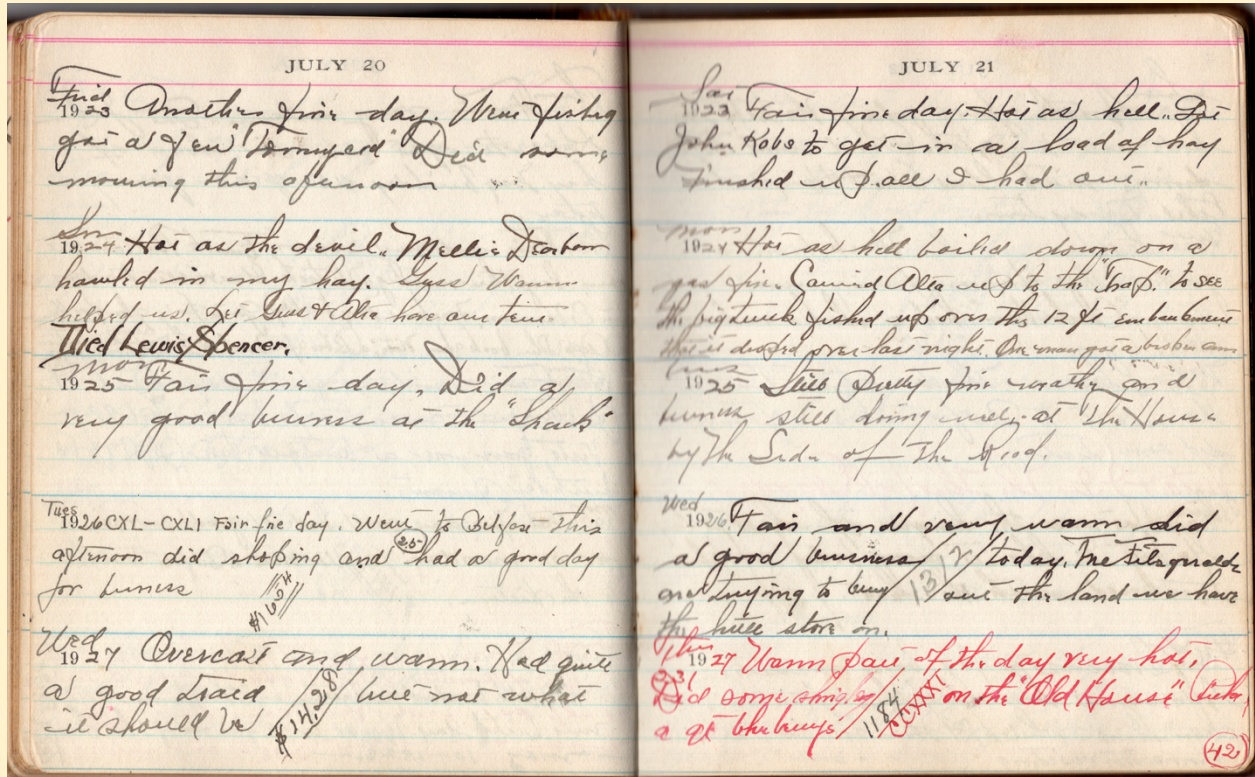 JULY 20
Frid
1923 Another fine day. Went fishing
got a few "Tomycod" Did some
mowing this afternoon
Sun
1924 Hot as the devil. Mellie Dearborn
hawled in my hay. Guss
helped us. Let Guss & Alta have our tent.
Died Lewis Spencer.
Mon
1925 Fair fine day. Did a
very good buness at the "Shack"
Tues
1926 CXL-CXLI Fair fine day. Went to Belfast this
afternoon did shoping and had a good day
for buness
Wed
1927 Overcast and warm. Had quite
a good traid $14.28 but not what
it should be
JULY 21
Sat
1923 Fair fine day. Hot as hell. Got
John Kobs to get in a load of hay
Finished up all I had out.
Mon
1924 Hot as hell boiled down on a
gas fire. Carried Alta up to the "Trap." to see
the big truck fished up over the 12 ft embankment
that it droped over last night. One man got a broken arm
Tues
1925 Still Pretty fine weather and
buness still doing well at "The House
by The Side of The Road.
Wed
1926 Fair and very warm did
a good buisness 1312 today. The Fitzgeralds
are trying to buy out the land we have
the little store on.
Thurs
1927 Warm part of the day very hot.
Did some shingling 1184 CCXXXI on the "Old House"
a qt blueberrys
42